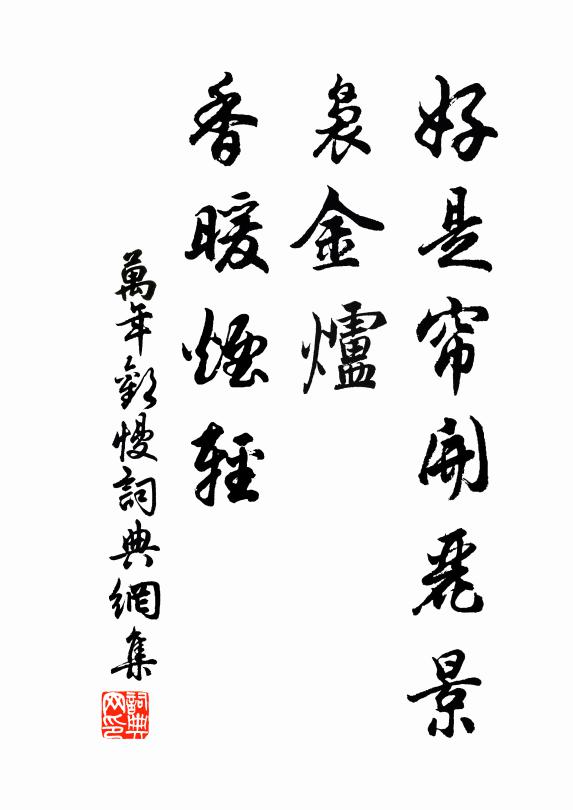 好是帘開麗景
裊金爐
香暖煙輕
萬年歡慢詞典網集
詞典網印